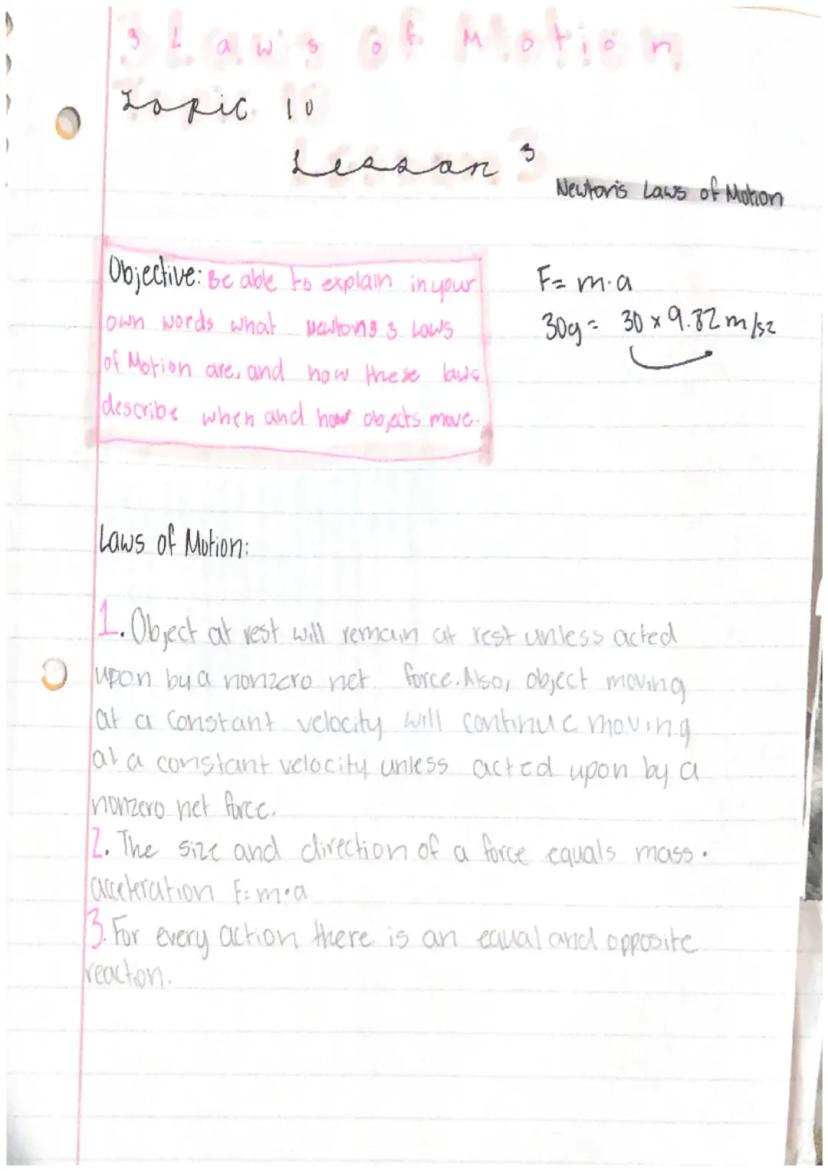 3 Laws of Motion
Topic 10
Lesson 3
Newton's Laws of Motion
Objective: Be able to explain in your
own words what Newtons 3 Laws
of Motion are, and how these laws
describe when and how objects move.
F= m·a
30g = 30 × 9.82 m/s2
Laws of Motion:
1. Object at rest will remain at rest unless acted
upon by a nonzero net force. Also, object moving
at a constant velocity will continue moving
at a constant velocity unless acted upon by a
nonzero net force.
2. The size and direction of a force equals mass·
acceleration F=m·a
3. For every action there is an equal and opposite
reaction.